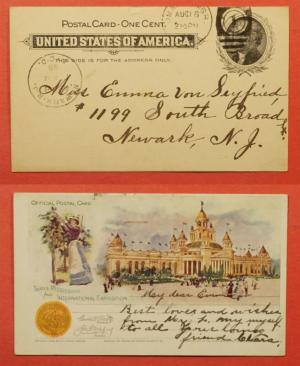 POSTAL CARD - ONE CENT.
AUG 16
UNITED STATES OF AMERICA.
THIS SIDE IS FOR THE ADDRESS ONLY.
Miss Emma von Seyfried,
#1199 South Broad
Newark, N. J.
OFFICIAL POSTAL CARD
Trans-Mississippi
and
INTERNATIONAL EXPOSITION
My dear Emma
Best loves and wishes
from Mr. L. my myself
to all Yours
friend Clara.